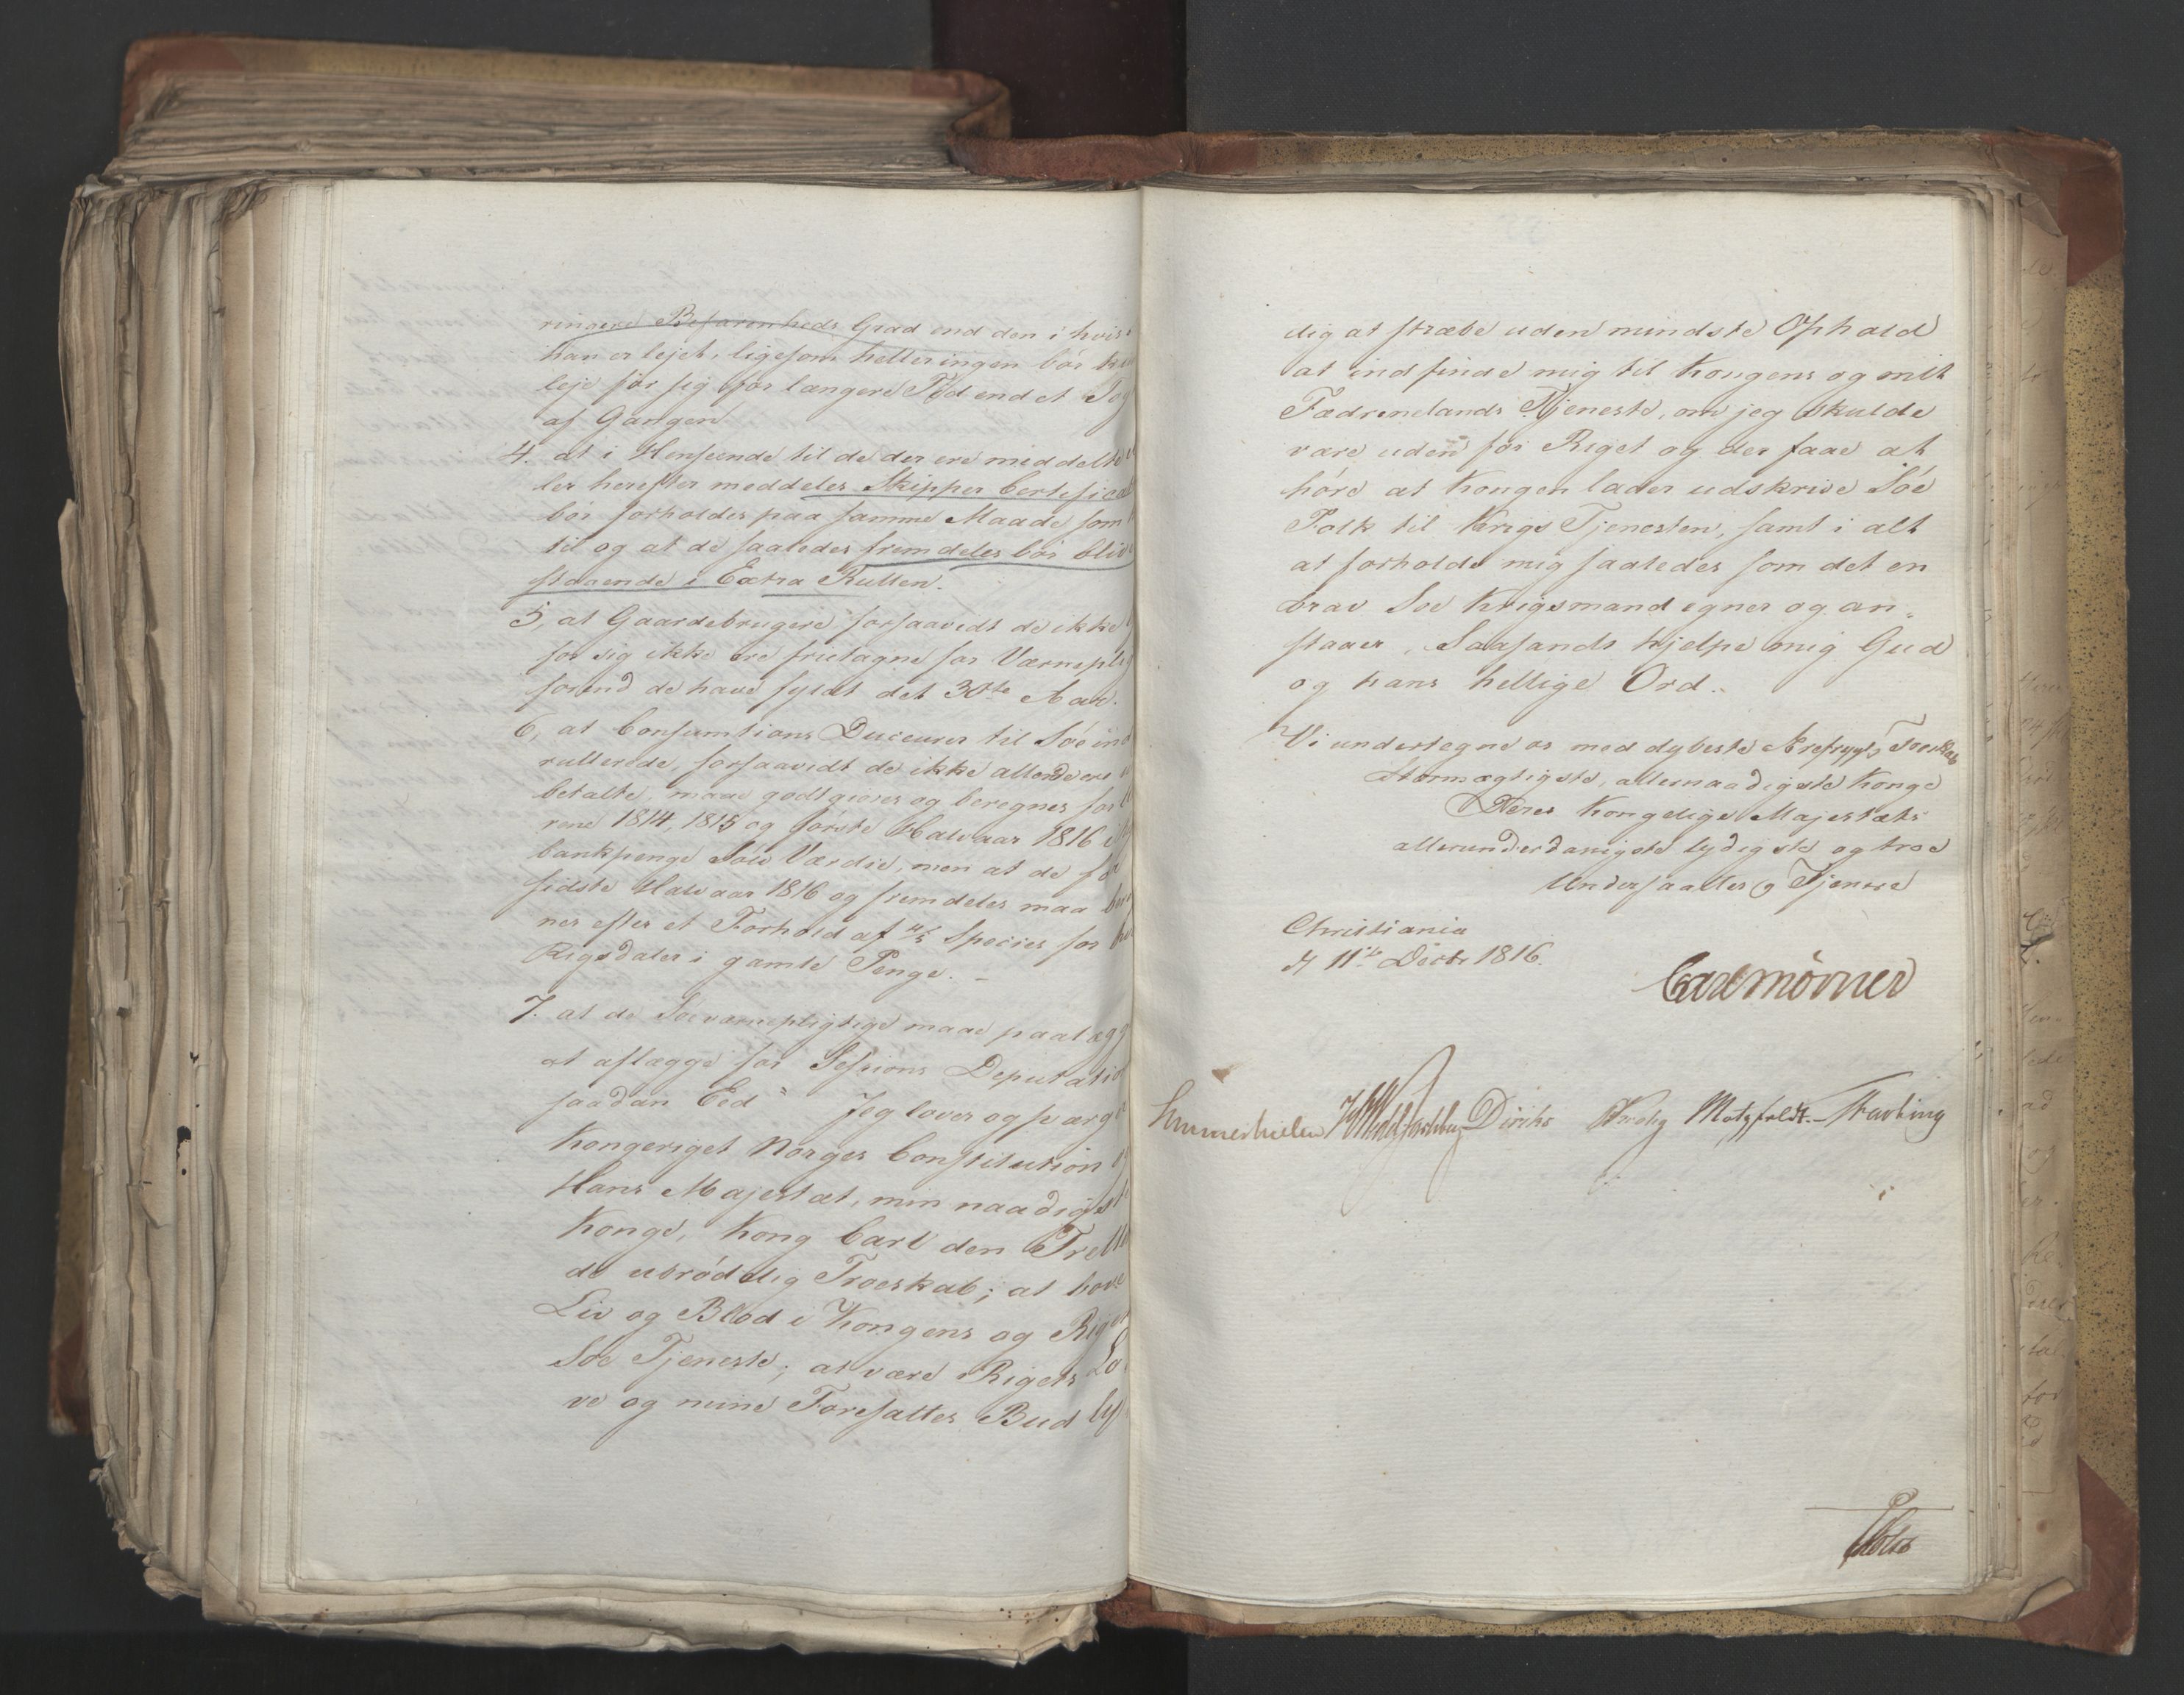 ringere Befarenheds Grad end den i hvis
han er lejet, ligesom heller ingen bör
leje sig for længere Tid end et Tog
af Gangen
4. at i Henseende til de der ere meddelte
ler herefter meddeles Skipper Certificat
bör forholdes paa samme Maade som
til og at de saaledes fremdeles bör blive
staaende i Extra Rullen.
5, at Gaardebrugere forsaavidt de ikke
for sig ikke ere frietagne for Værneplig
forend de have fyldt det 30te Aar.
6, at Consumtions Duceurer til Söe ind
rullerede, forsaavidt de ikke allerede ere
betalte, maae godtgiöres og beregnes for
rene 1814, 1815 og förste Halvaar 1816 i
bankpenge Sölv Værdie, men at de for
sidste Halvaar 1816 og fremdeles maa
nes efter et Forhold af 4/5 Species for
Rigsdaler i gamle Penge. –
7. at de Söeværnepligtige maae paalægg
at aflægge for Sessions Deputatio
saadan Eed " Jeg lover og sværge
Kongeriget Norges Constitution og
Hans Majestæt, min naadigste
Konge, Kong Carl den Trette
de ubrödelig Troeskab; at vove
Liv og Blod i Kongens og Rigets
Söe Tjeneste; at være Rigets Lo
ve og mine Foresattes Bud ly
dig at stræbe uden mindste Ophold
at indfinde mig til Kongens og mit
Fædrenelands Tjeneste, om jeg skulde
være uden for Riget og der faae at
höre at Kongen lader udskrive Söe
Folk til Krigs Tjenesten, samt i alt
at forholde mig saaledes som det en
brav Söe Krigsmand egner og an-
staaer. Saasandt hjelpe mig Gud
og hans hellige Ord.
Vi undertegne os med dybeste Ærefrygt, Troeskab
Stormægtigste, allernaadigste Konge
Deres Kongelige Majestæts
allerunderdanigste lydigste og troe
Undersaatter og Tjenere
Christiania
d 11te Decbr 1816.
Carl Mörner
Sommerhielm Diriks Krohg Motzfeldt Fasting
Holst